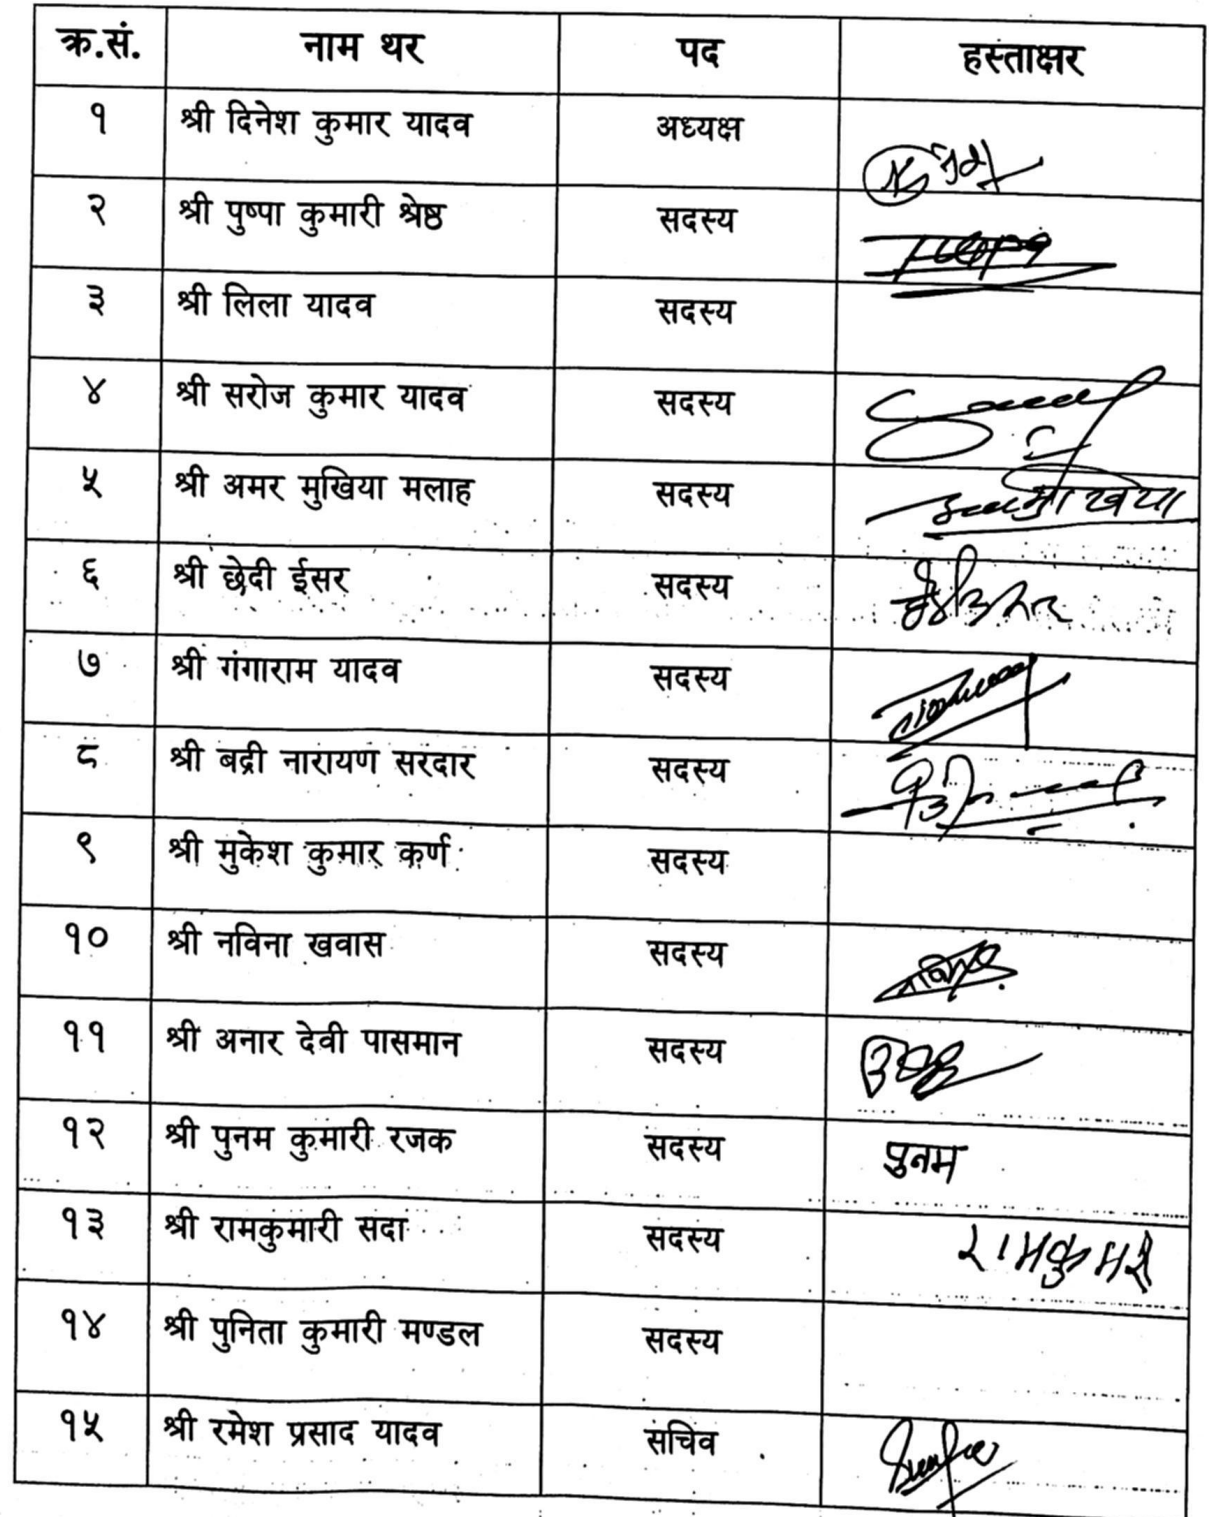 क्र.सं. नाम थर पद हस्ताक्षर
१ श्री दिनेश कुमार यादव अध्यक्ष
२ श्री पुष्पा कुमारी श्रेष्ठ सदस्य
३ श्री लिला यादव सदस्य
४ श्री सरोज कुमार यादव सदस्य
५ श्री अमर मुखिया मलाह सदस्य मुखिया
६ श्री छेदी ईसर सदस्य
७ श्री गंगाराम यादव सदस्य
८ श्री बद्री नारायण सरदार सदस्य
९ श्री मुकेश कुमार कर्ण सदस्य
१० श्री नविना खवास सदस्य
११ श्री अनार देवी पासमान सदस्य
१२ श्री पुनम कुमारी रजक सदस्य पुनम
१३ श्री रामकुमारी सदा सदस्य रामकुमारी
१४ श्री पुनिता कुमारी मण्डल सदस्य
१५ श्री रमेश प्रसाद यादव सचिव